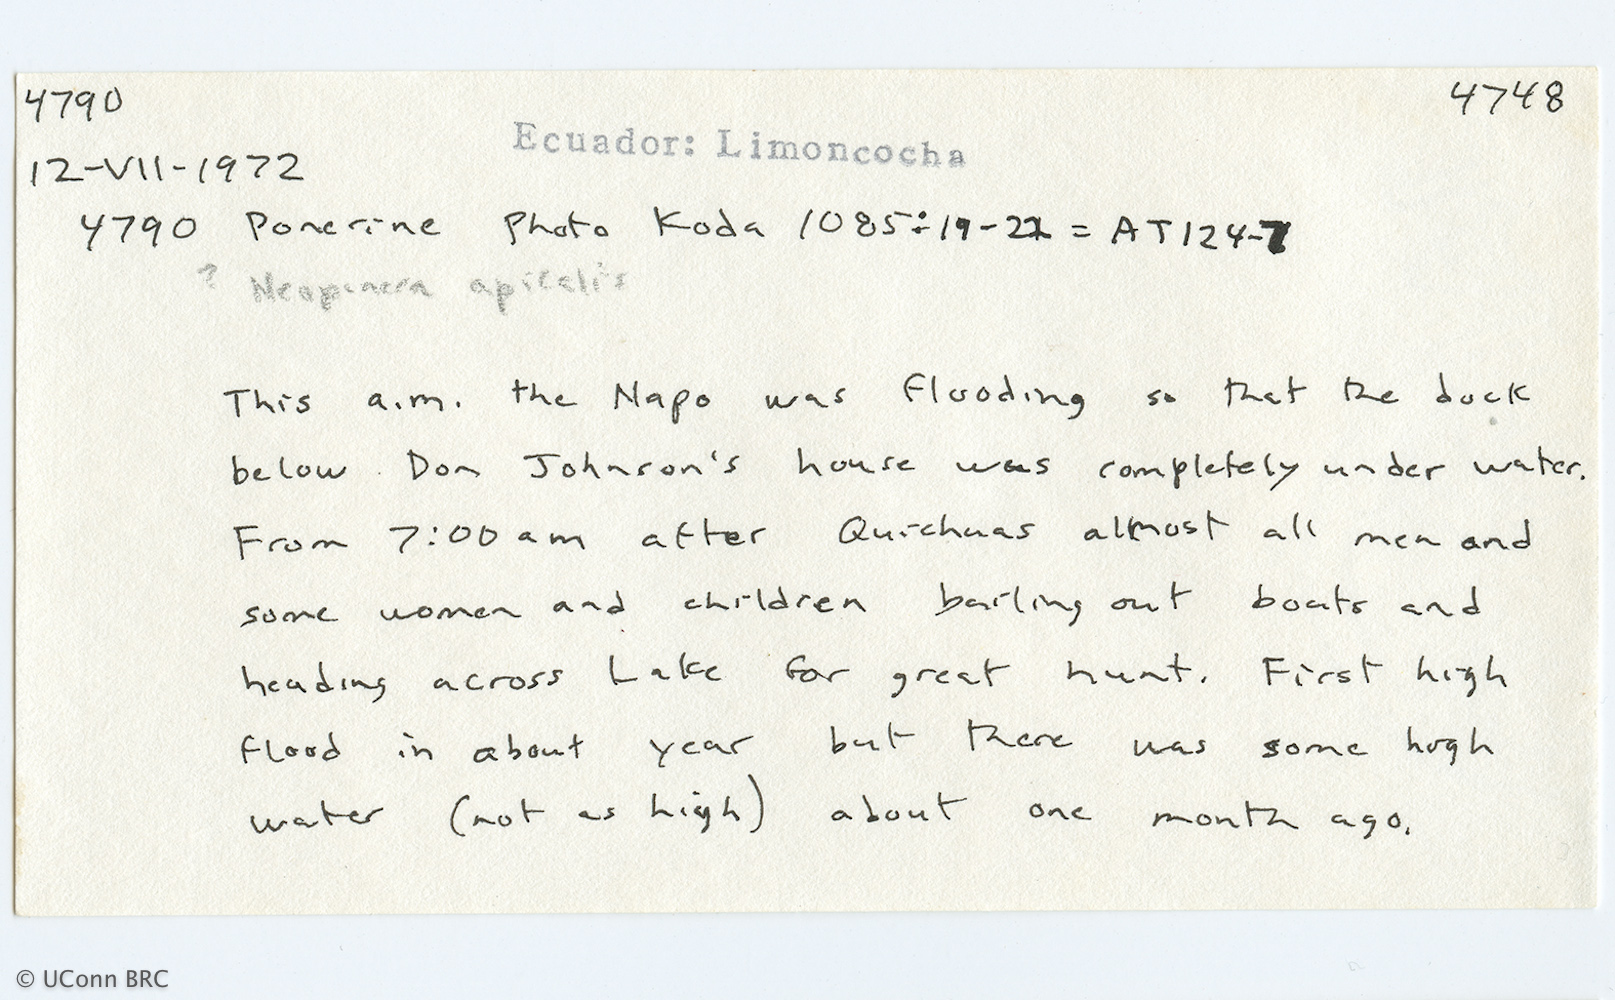 4790 4748
Ecuador: Limoncocha
12-VII-1972
4790 Ponerine Photo Koda 1085:19-22 = AT124-7
? Neoponera apicalis
This a.m. the Napo was flooding so that the dock
below Don Johnson's house was completely under water.
From 7:00 am after Quichuas almost all men and
some women and children bailing out boats and
heading across Lake for great hunt. First high
flood in about year but there was some high
water (not as high) about one month ago.
© UConn BRC